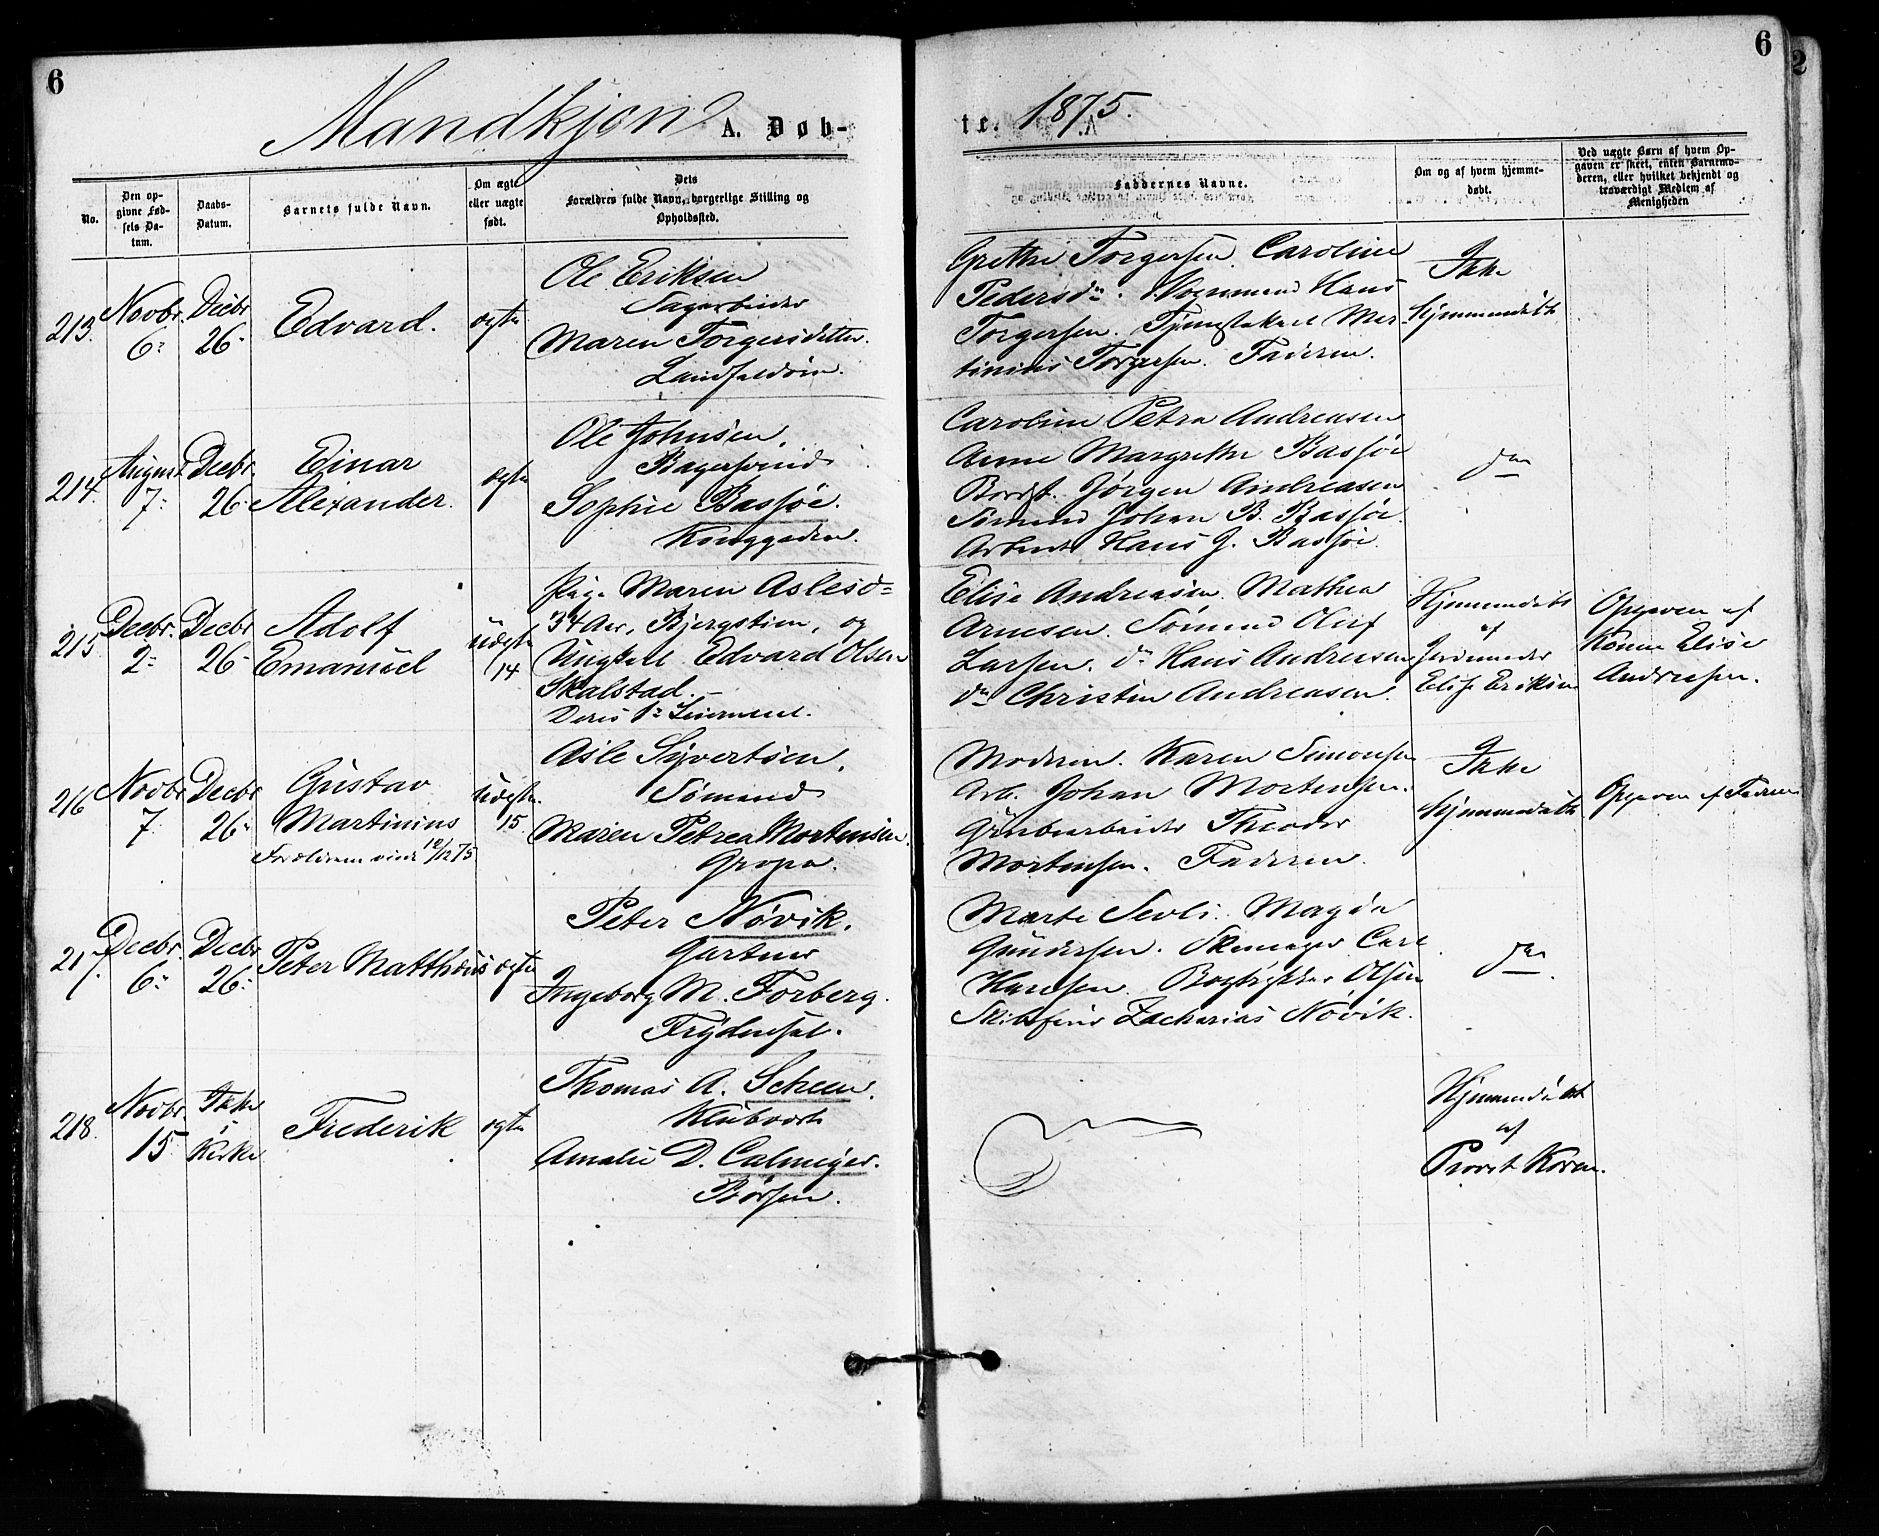 6
Mandkjøn A. Døb-
No.
Den op-
givne Fød-
sels Da-
tum.
Daabs-
Datum.
Barnets fulde Navn.
Om ægte
eller uægte
født.
Dets
Forældres fulde Navn, borgerlige Stilling og
Opholdssted.
213.
Novbr.
6
Decbr
26
Edvard.
ægte
Ole Eriksen
Sagarbeider
Maren Torgersdatter
Landfaldøen.
214.
August
7
Decbr.
26
Einar
Alexander.
ægte
Ole Johnsen,
Bagersvend
Sophie Bassøe.
Konggaden.
215.
Decbr.
2
Decbr
26
Adolf
Emanuel
Uægte
14
Pige Maren Aslesd
34 Aar, Bjergstien, og
Ungkarl Edvard Olsen
Skalstad.
Deres 1 Leiermaal.
216
Novbr
7
Decbr
26
Gustav
Martinius
Forældrene viet 12/12 75
Uægte.
15.
Asle Syvertsen,
Sømand
Maren Petrea Mortensen.
Gropa.
217.
Decbr.
6
Decbr
26
Peter Matthæus
ægte
Peter Nøvik.
Gartner
Ingeborg M. Forberg.
Frydensal.
218.
Novbr.
15
Ikke
i
Kirke
Frederik
ægte
Thomas A. Scheen.
Klubvært
Amalie D. Calmeyer.
Børsen.
6
te. 1875.
Faddernes Navne.
Om og af hvem hjemme-
døbt.
Ved uægte Børn af hvem Op-
gaven er skeet, enten Barnemo-
deren, eller hvilket bekjendt og
troværdigt Medlem af
Menigheden
Grethe Torgersen. Caroline
Pedersd. Hans
Torgersen. Mar-
tinius Torgersen. Faderen.
Ikke
hjemmedøbt
Caroline Petra Andreasen
Anne Margrethe Bassøe
Jørgen Andreasen
Sømand Johan B. Bassøe.
Arbeid. Hans J. Bassøe.
do
Elise Andreasen. Mathea
Arnesen. Sømand Oluf
Larsen. do Hans Andreasen
do Christen Andreasen.
Hjemmedøbt
af
Jordmoder
Elise Eriksen
Opgaven af
Kone Elise
Andreasen.
Moderen. Karen Simonsen
Arb. Johan Mortensen.
Grubearbeider Theodor
Mortensen. Faderen.
Ikke
hjemmedøbt
Opgaven af Faderen
Marte Sevli. Magda
Gundersen. Skomager Carl
Hansen. Bogtrykker Olsen
Zacharias Nøvik.
do
Hjemmedøbt
af
Provst Koren.
2